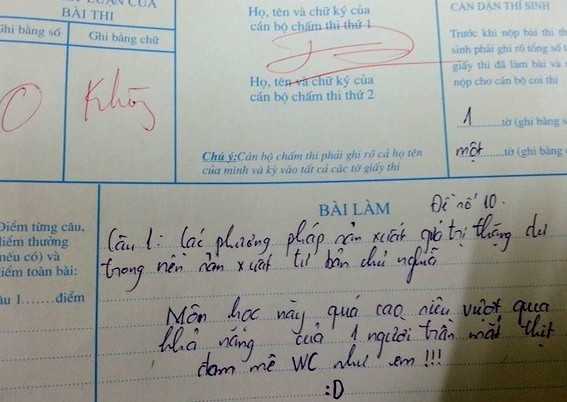 LUẬN CỦA
BÀI THI
Ghi bằng số
Ghi bằng chữ
0
Không
Họ, tên và chữ ký của
cán bộ chấm thi thứ 1
Họ, tên và chữ ký của
cán bộ chấm thi thứ 2
Chú ý:Cán bộ chấm thi phải ghi rõ cả họ tên
của mình và ký vào tất cả các tờ giấy thi
CĂN DẶN THÍ SINH
Trước khi nộp bài thi
sinh phải ghi rõ tổng số
giấy thi đã làm bài và
nộp cho cán bộ coi thi
1 tờ (ghi bằng
một tờ (ghi bằng
Điểm từng câu,
điểm thưởng
(nếu có) và
điểm toàn bài:
Câu 1......điểm
BÀI LÀM
Đề số 10.
Câu 1: Các phương pháp sản xuất giá trị thặng dư
trong nền sản xuất tư bản chủ nghĩa
Môn học này quá cao siêu vượt qua
khả năng của 1 người trần mắt thịt
đam mê WC như em !!!
:D